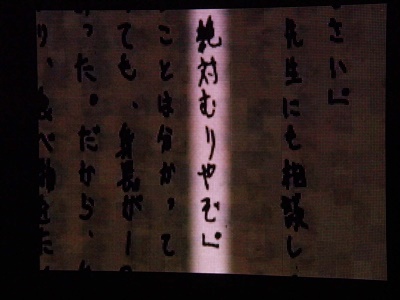 さい」
先生にも相談し
絶対むりやぞ」
ことは分かって
ても、身長が1
った。だから、
り、食べ物を